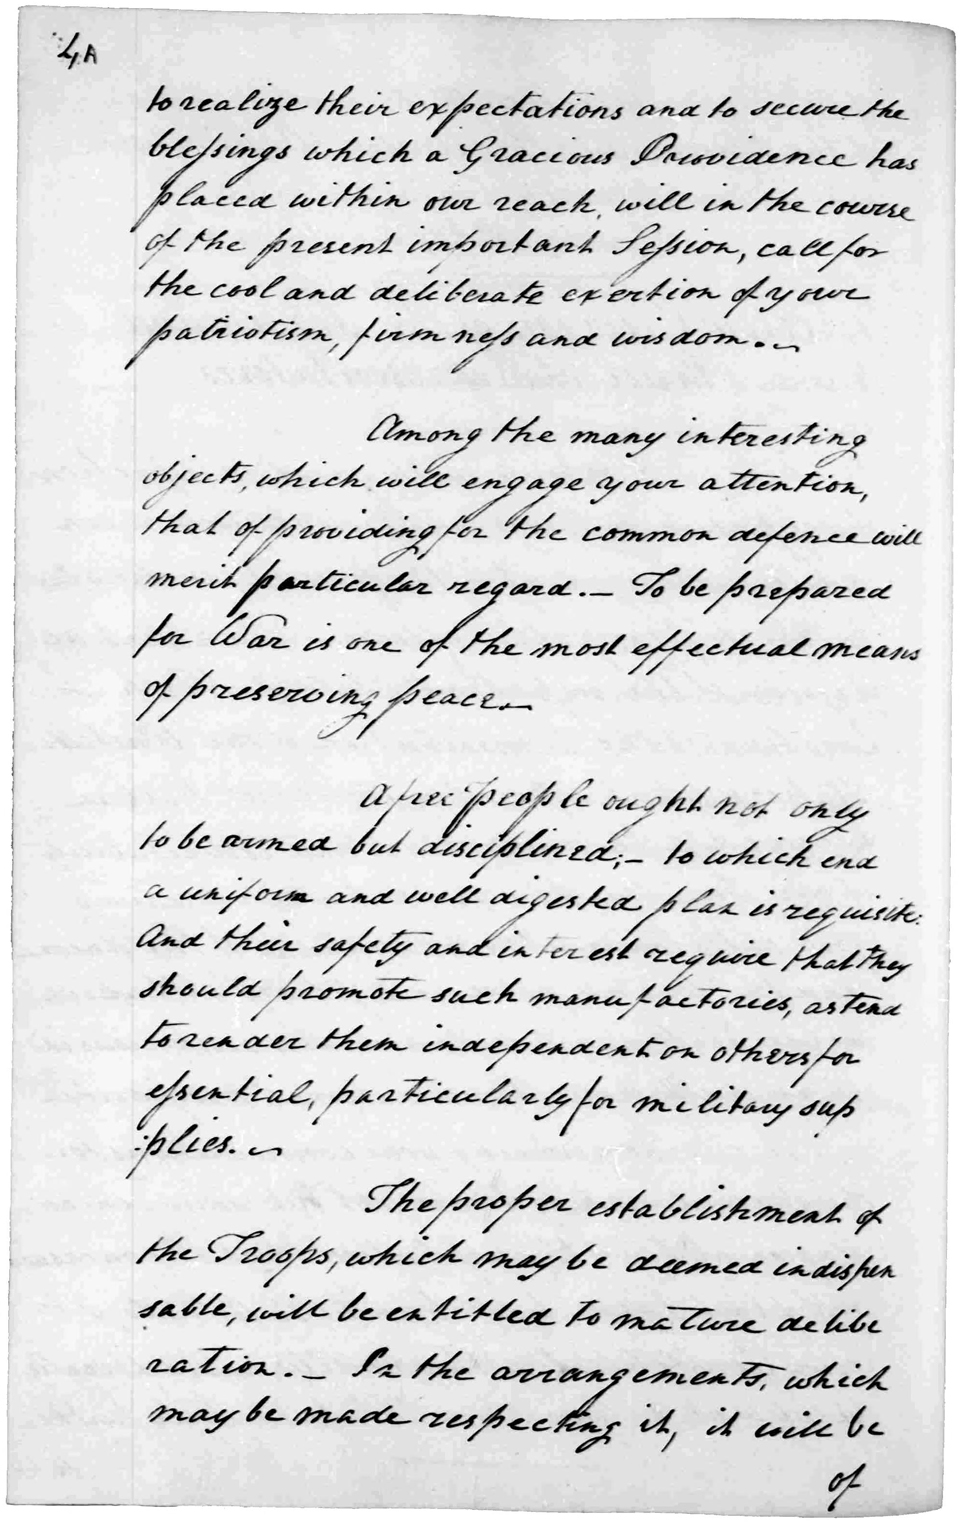 4A
to realize their expectations and to secure the
blessings which a Gracious Providence has
placed within our reach, will in the course
of the present important Session, call for
the cool and deliberate exertion of your
patriotism, firmness and wisdom.
Among the many interesting
objects, which will engage your attention,
that of providing for the common defence will
merit particular regard. — To be prepared
for War is one of the most effectual means
of preserving peace. —
A free people ought not only
to be armed but disciplined; — to which end
a uniform and well digested plan is requisite:
And their safety and interest require that they
should promote such manufactories, as tend
to render them independent on others for
essential, particularly for military sup
:plies. ~
The proper establishment of
the Troops, which may be deemed indispen
sable, will be entitled to mature delibe
ration. — In the arrangements, which
may be made respecting it, it will be
of